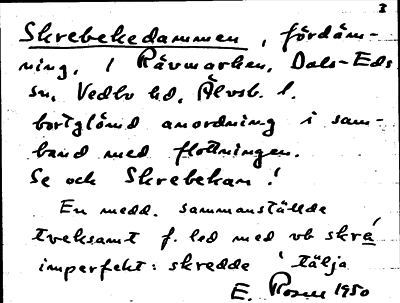 Skrebekedammen, fördäm-
ning, i Rävmarken, Dals-Eds
sn, Vedbo hd, Älvsb. l.
bortglömd anordning i sam-
band med flottningen.
Se och Skrebekan!
En medd. sammanställde
tveksamt f. led med vb skrä
imperfekt: skredde 'tälja
E. Rosen 1950